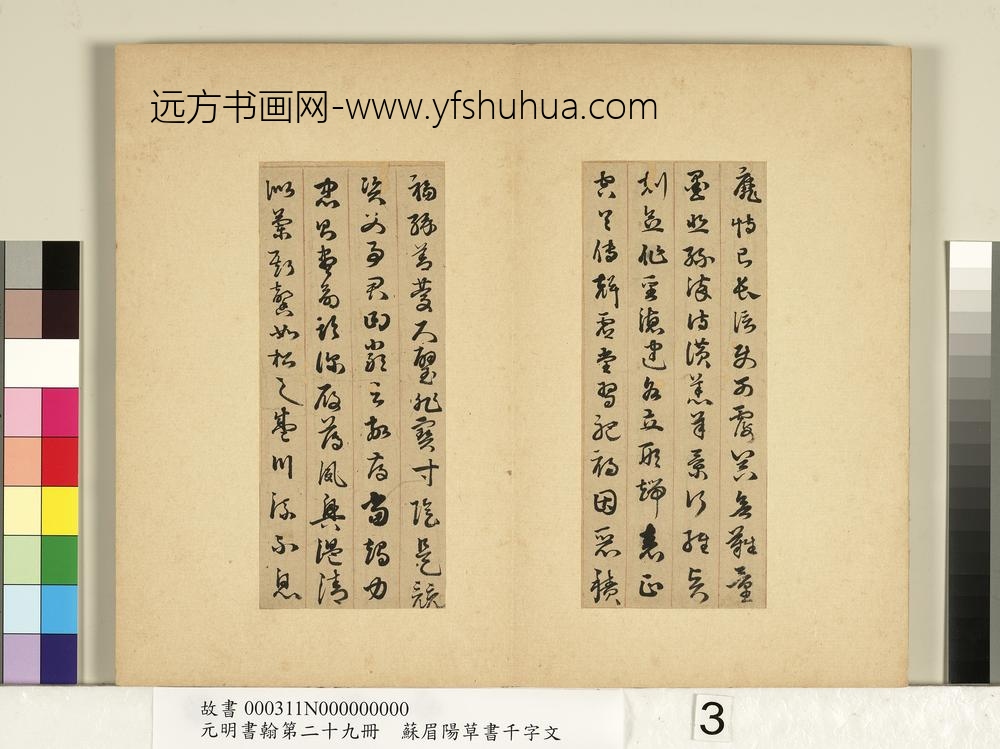 远方书画网-www.yfshuhua.com
靡恃己長信使可覆器欲難量
墨悲絲染詩讚羔羊景行維賢
剋念作聖德建名立形端表正
空谷傳聲虛堂習聽禍因惡積
福緣善慶尺璧非寶寸陰是競
資父事君曰嚴與敬孝當竭力
忠則盡命臨深履薄夙興溫凊
似蘭斯馨如松之盛川流不息
故書 000311N000000000
元明書翰第二十九冊 蘇眉陽草書千字文
3